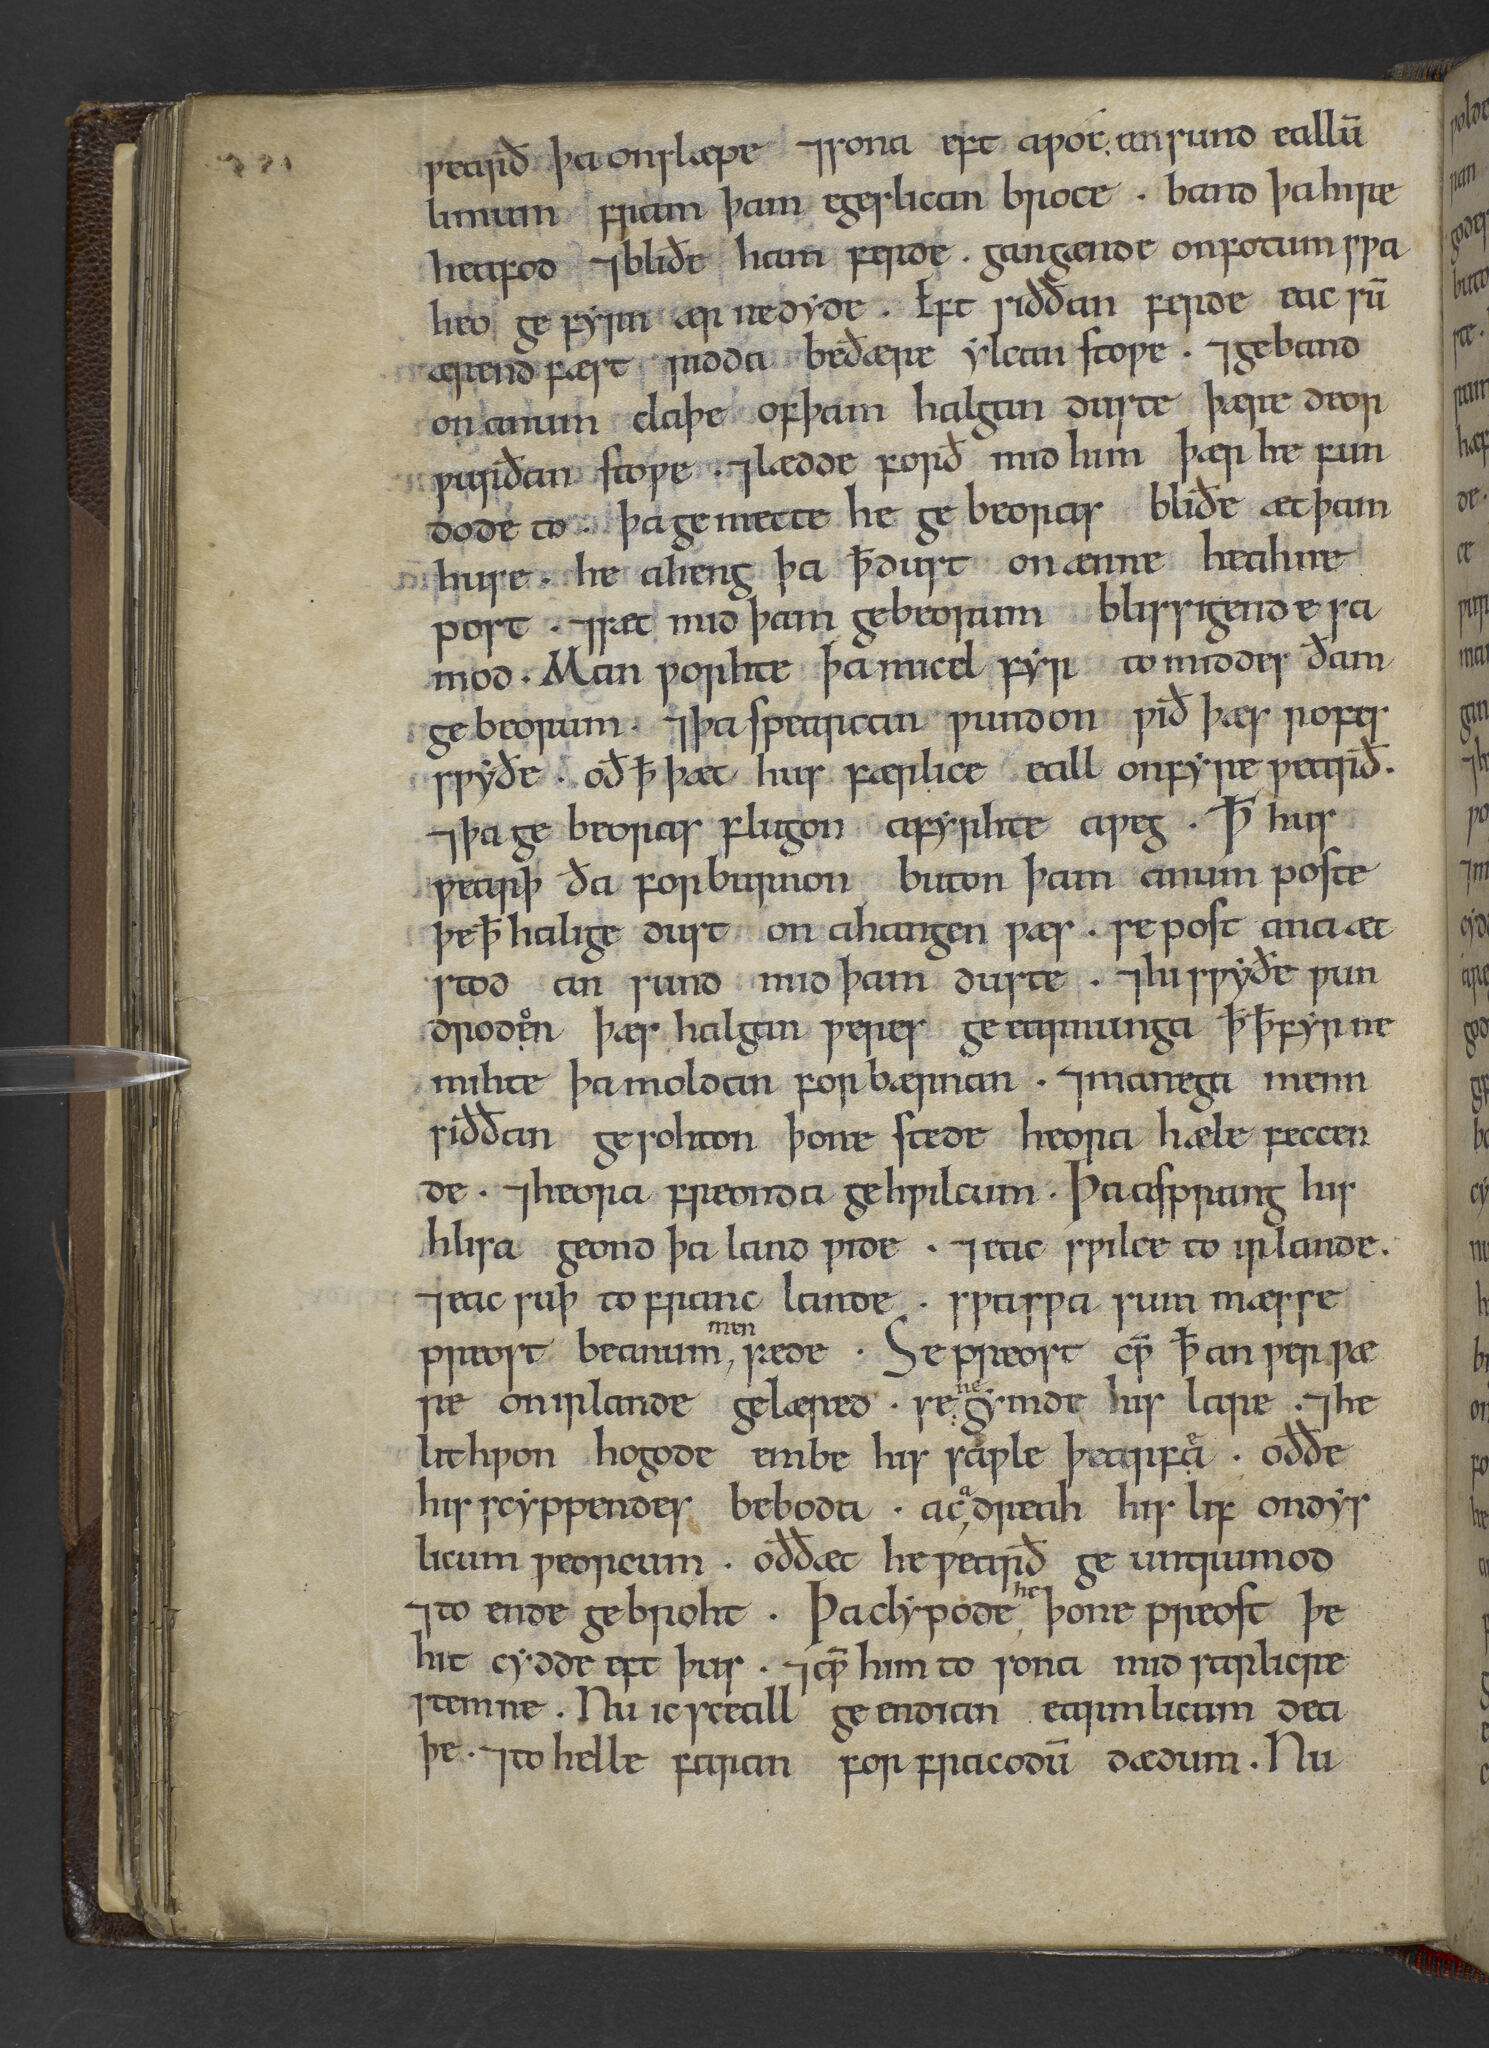 ƿearð þa onslæpe ⁊sona eft aƿoc, ansund eallū
limum fram þam egeslican broce . band þa hire
heafod ⁊bliðe ham ferde . gangænde onfotum sƿa
heo ge fyrn ær nedyde . Eft siððan ferde eac sū
ærend fæst ridda beðære ylcan stoƿe . ⁊geband
on anum claþe ofþam halgan duste þære deor
ƿurðan stoƿe . ⁊lædde forð mid him þær he fun
dode to . þa ge mette he ge beoras bliðe æt þam
huse . he aheng þa ꝥdust on ænne heahne
post . ⁊sæt mid þam gebeorum blissigende sa
mod . Man ƿorhte þa micel fyr to middes ðam
ge beorum . ⁊þa spearcan ƿundon ƿið þæs rofes
sƿyðe . oðꝥ þæt hus færlice eall onfyre ƿearð .
⁊þa ge beoras flugon afyrhte aƿeg . Ꝥ hus
ƿearþ ða forburnon buton þam anum poste
þeꝥ halige dust on ahangen ƿæs . se post ana æt
stod an sund mid þam duste . ⁊hi sƿyðe ƿun
drodon þæs halgan ƿeres ge earnunga ꝥꝥfyr ne
mihte þa moldan forbærnan . ⁊manega menn
siððan ge sohton þone stede heora hæle feccen
de . ⁊heora freonda gehƿilcum . Þa asprang his
hlisa geond þa land ƿide . ⁊eac sƿilce to irlande .
⁊eac suþ to franc lande . sƿasƿa sum mæsse
preost beanum, men sæde . Se preost cƿ̄ ꝥ an ƿer ƿæ
re onirlande gelæred . se ne gymde his lare . ⁊he
lithƿon hogode embe his saƿle þearfe . oððe
his scyppendes beboda . ac, adreah his lif ondys
licum ƿeorcum . oððæt he ƿearð ge untrumod
⁊to ende gebroht . Þa clypode, he þone preost þe
hit cydde eft þus . ⁊cƿ̄ him to sona mid sarlicre
stemne . Nu ic sceall ge endian earmlicum dea
þe . ⁊to helle faran for fracodū dædum . Nu